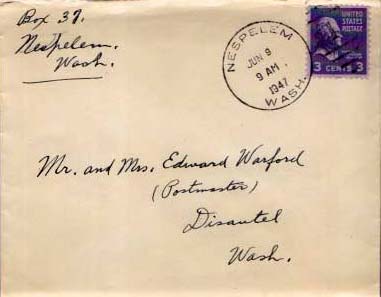 Box 37.
Nespelem.
Wash.
NESPELEM
JUN 9
9 AM
1947
WASH.
UNITED STATES
POSTAGE
3 CENTS 3
Mr. and Mrs. Edward Warford
(Postmaster)
Disautel
Wash.